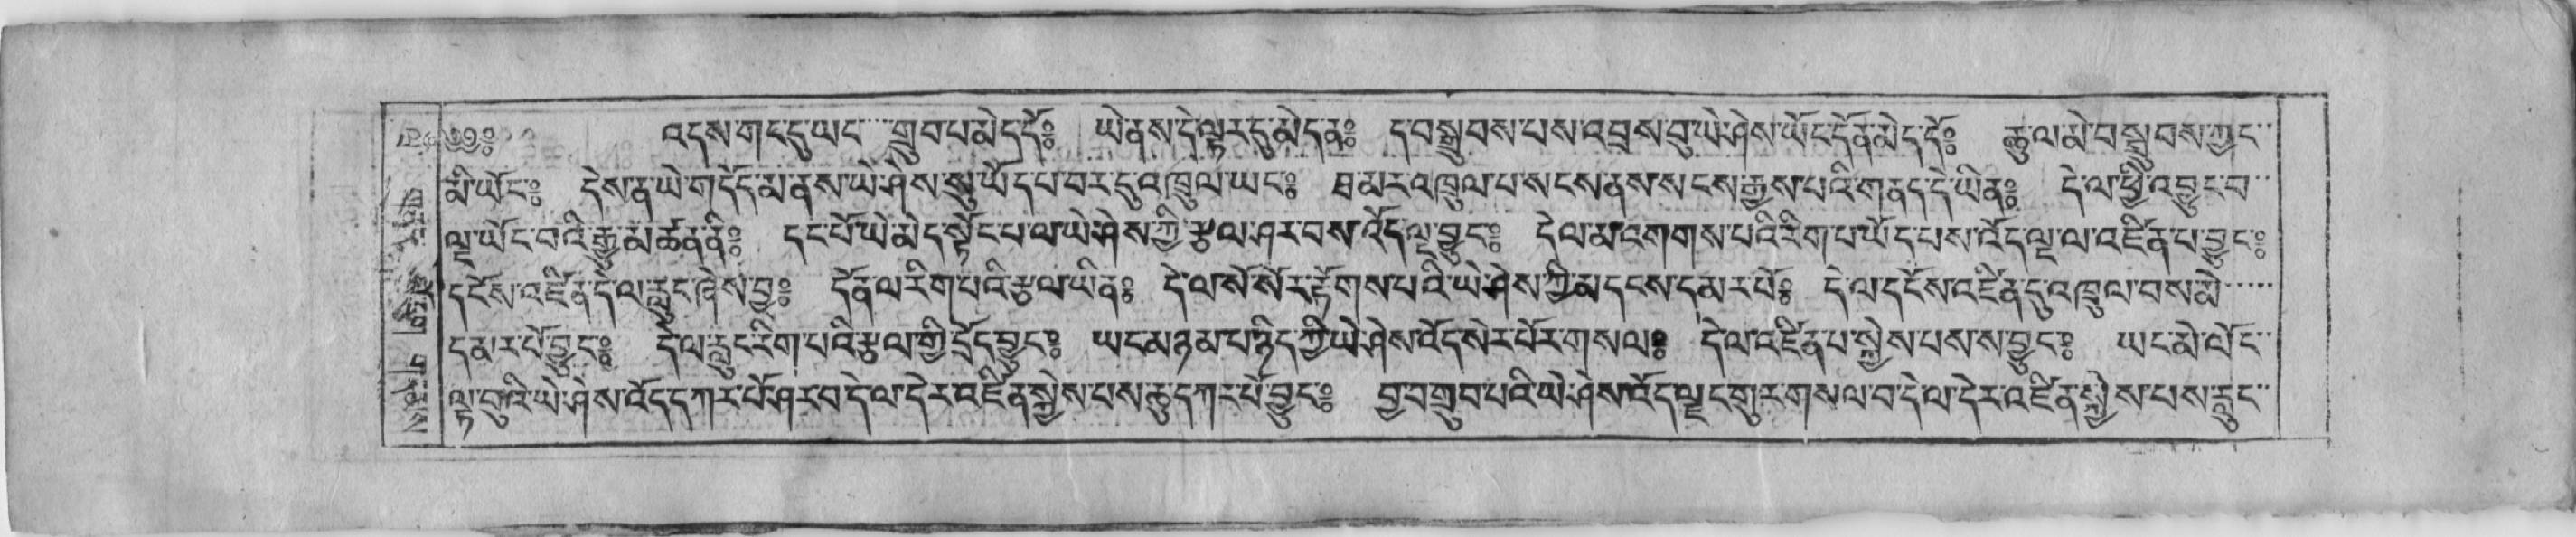 ༄༅༔ འདས་གང་དུ་ཡང་གྲུབ་པ་མེད་དོ༔ ཡེ་ནས་དེ་ལྟར་དུ་མེད་ན༔ ད་བསྒྲུབས་པས་འབྲས་བུ་ཡེ་ཤེས་ཡོང་དོན་མེད་དོ༔ ཆུ་ལ་མེ་བསྲུབས་ཀྱང་
མི་ཡོང༔ དེས་ན་ཡེ་གདོད་མ་ནས་ཡེ་ཤེས་སུ་ཡོད་པ་བར་དུ་འཁྲུལ་ཡང༔ ཐ་མར་འཁྲུལ་པ་སངས་ནས་སངས་རྒྱས་པའི་གནད་དེ་ཡིན༔ དེ་ལ་ཕྱི་འབྱུང་བ་
ལྔ་ཡོང་བའི་རྒྱུ་མཚན་ནི༔ དང་པོ་ཡེ་མེད་སྟོང་པ་ལ་ཡེ་ཤེས་ཀྱི་རྩལ་ཤར་བས་འོད་ལྔ་བྱུང༔ དེ་ལ་མ་འགགས་པའི་རིག་པ་ཡོད་པས་འོད་ལྔ་ལ་འཛིན་པ་བྱུང༔
དངོས་འཛིན་དེ་ལ་རླུང་ཞེས་བྱ༔ དོན་ལ་རིག་པའི་རྩལ་ཡིན༔ དེ་ལ་སོ་སོར་རྟོགས་པའི་ཡེ་ཤེས་ཀྱི་མདངས་དམར་པོ༔ དེ་ལ་དངོས་འཛིན་དུ་འཁྲུལ་བས་མེ་
དམར་པོ་བྱུང༔ དེ་ལ་རླུང་རིག་པའི་རྩལ་གྱི་དྲོད་བྱུང༔ ཡང་མཉམ་པ་ཉིད་ཀྱི་ཡེ་ཤེས་འོད་སེར་པོར་གསལ༔ དེ་ལ་འཛིན་པ་སྐྱེས་པས་ས་བྱུང༔ ཡང་མེ་ལོང་
ལྟ་བུའི་ཡེ་ཤེས་འོད་དཀར་པོ་ཤར་བ་དེ་ལ་དེར་འཛིན་སྐྱེས་པས་ཆུ་དཀར་པོ་བྱུང༔ བྱ་བ་གྲུབ་པའི་ཡེ་ཤེས་འོད་ལྗང་གུར་གསལ་བ་དེ་ལ་དེར་འཛིན་སྐྱེས་པས་རླུང་